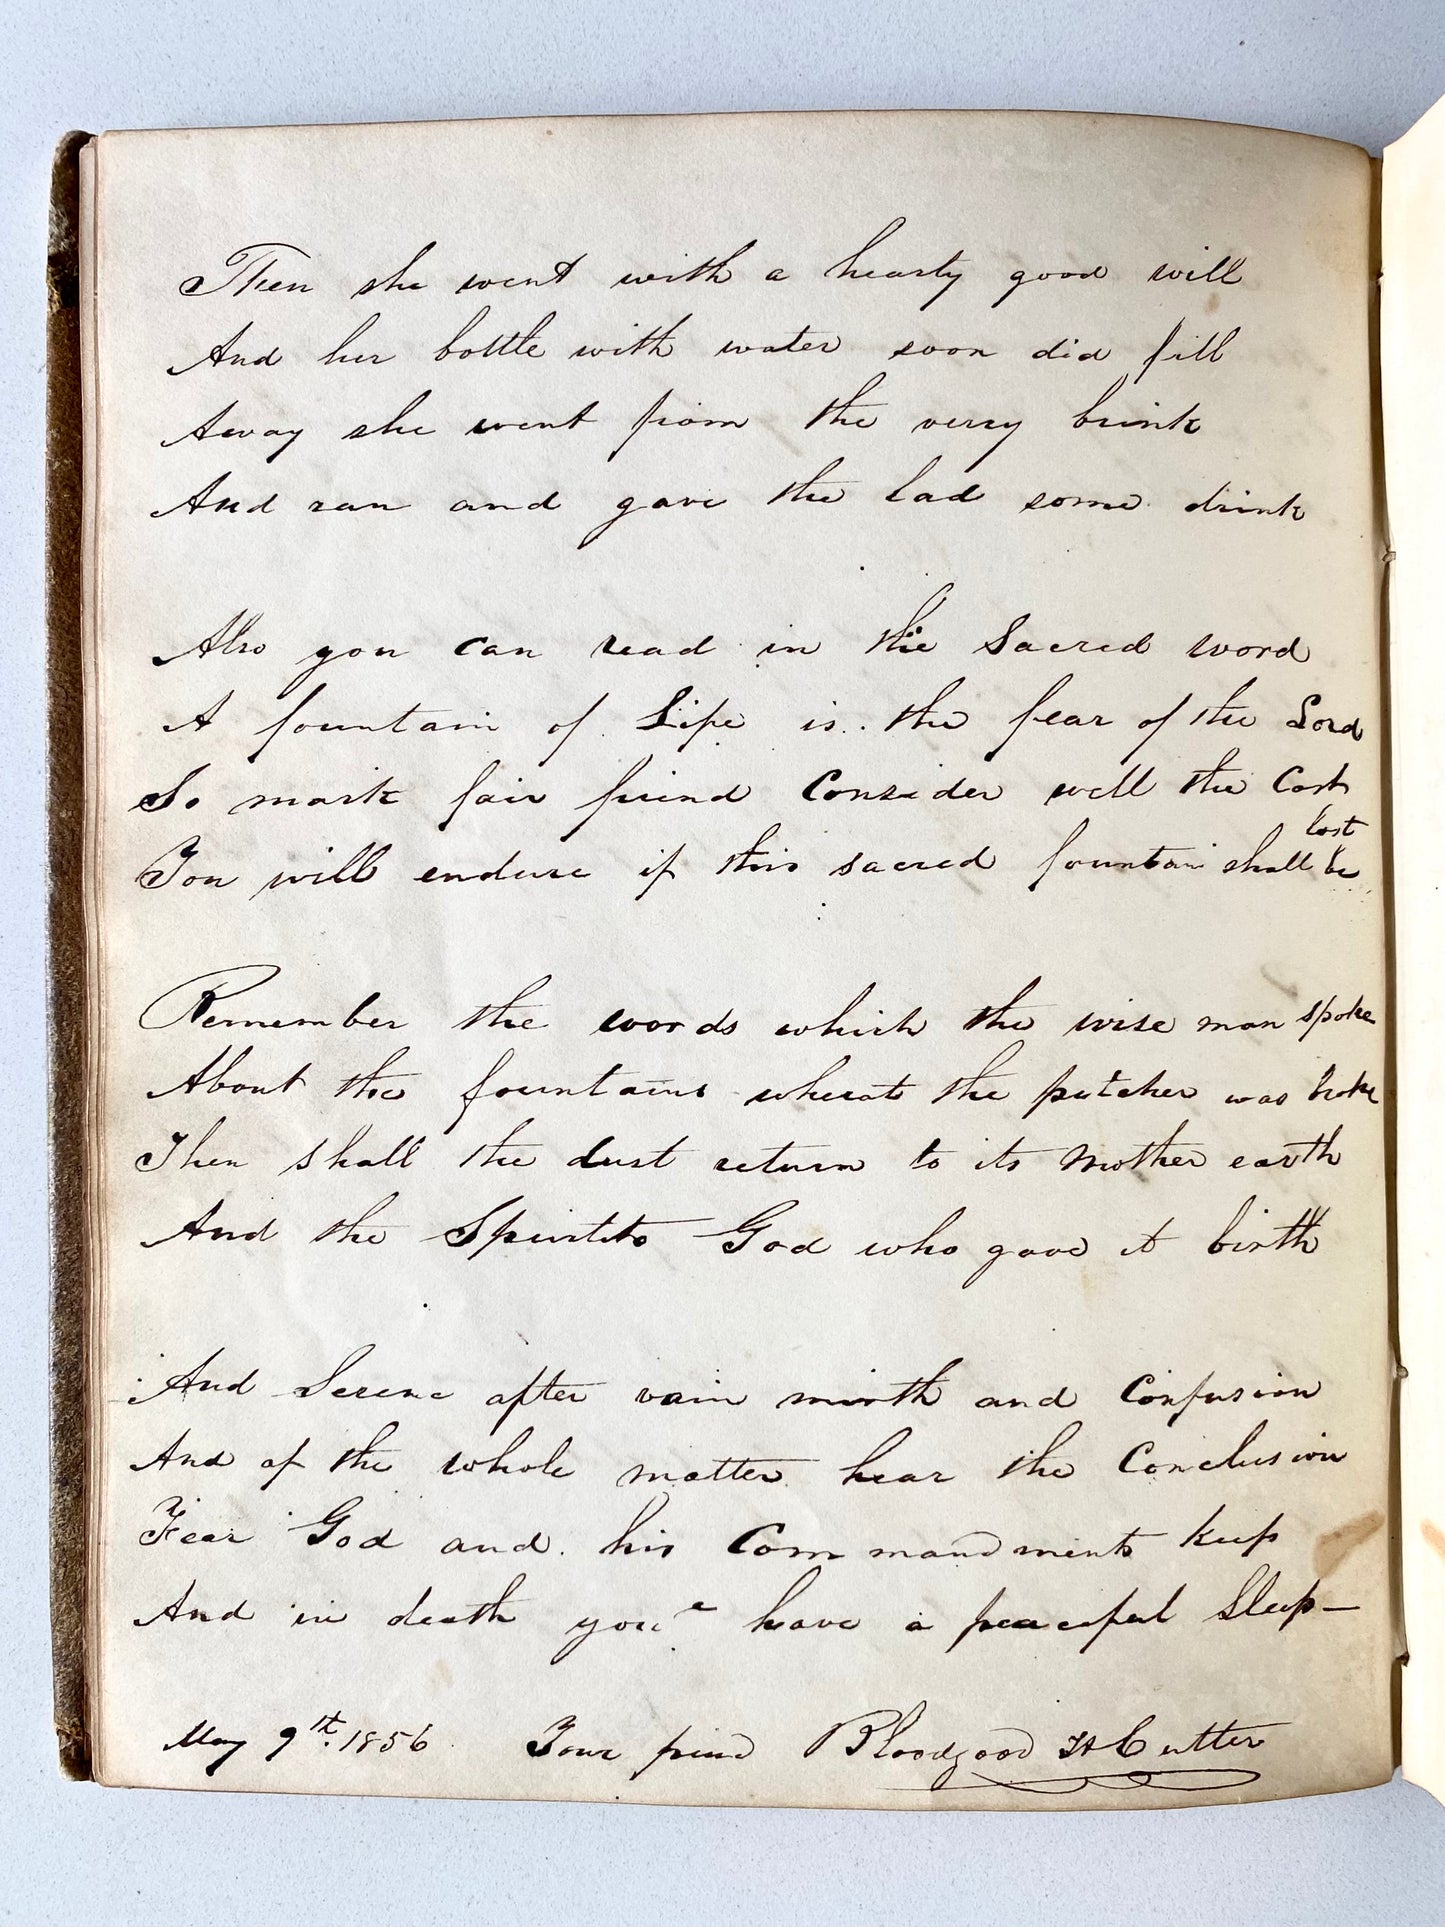 Then she went with a hearty good will
And her bottle with water soon did fill
Away she went from the verry brink
And ran and gave the lad some drink
Also you can read in the Sacred word
A fountain of Life is the fear of the Lord
So mark fair friend Consider well the Cost
You will endure if this sacred fountain shall be lost
Remember the words which the wise man spoke
About the fountains whereat the pitcher was broke
Then shall the dust return to its Mother earth
And the Spirit to God who gave it birth
And Serene after vain mirth and Confusion
And of the whole matter hear the Conclusion
Fear God and his Commandments keep
And in death you have a peaceful Sleep —
May 9th. 1856 Your friend Bloodgood H Cutter